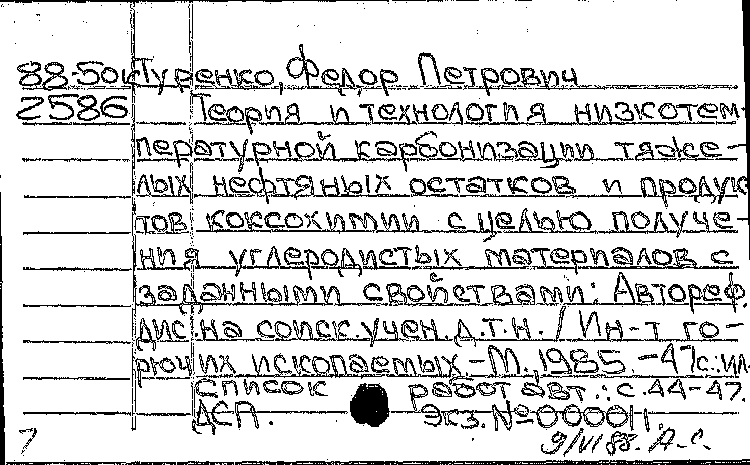 88-5ок Туренко, Федор Петрович
2586 Теория и технология низкотем-
пературной карбонизации тяже-
лых нефтяных остатков и продук
тов коксохимии с целью получе-
ния углеродистых материалов с
заданными свойствами: Автореф.
дис. на соиск. учен. д.т.н. / Ин-т го-
рючих ископаемых. - М., 1985. - 47с.: ил.
Список работ авт.: с.44-47.
ДСП. Экз. №000011.
7 9/VI 88. А.С.